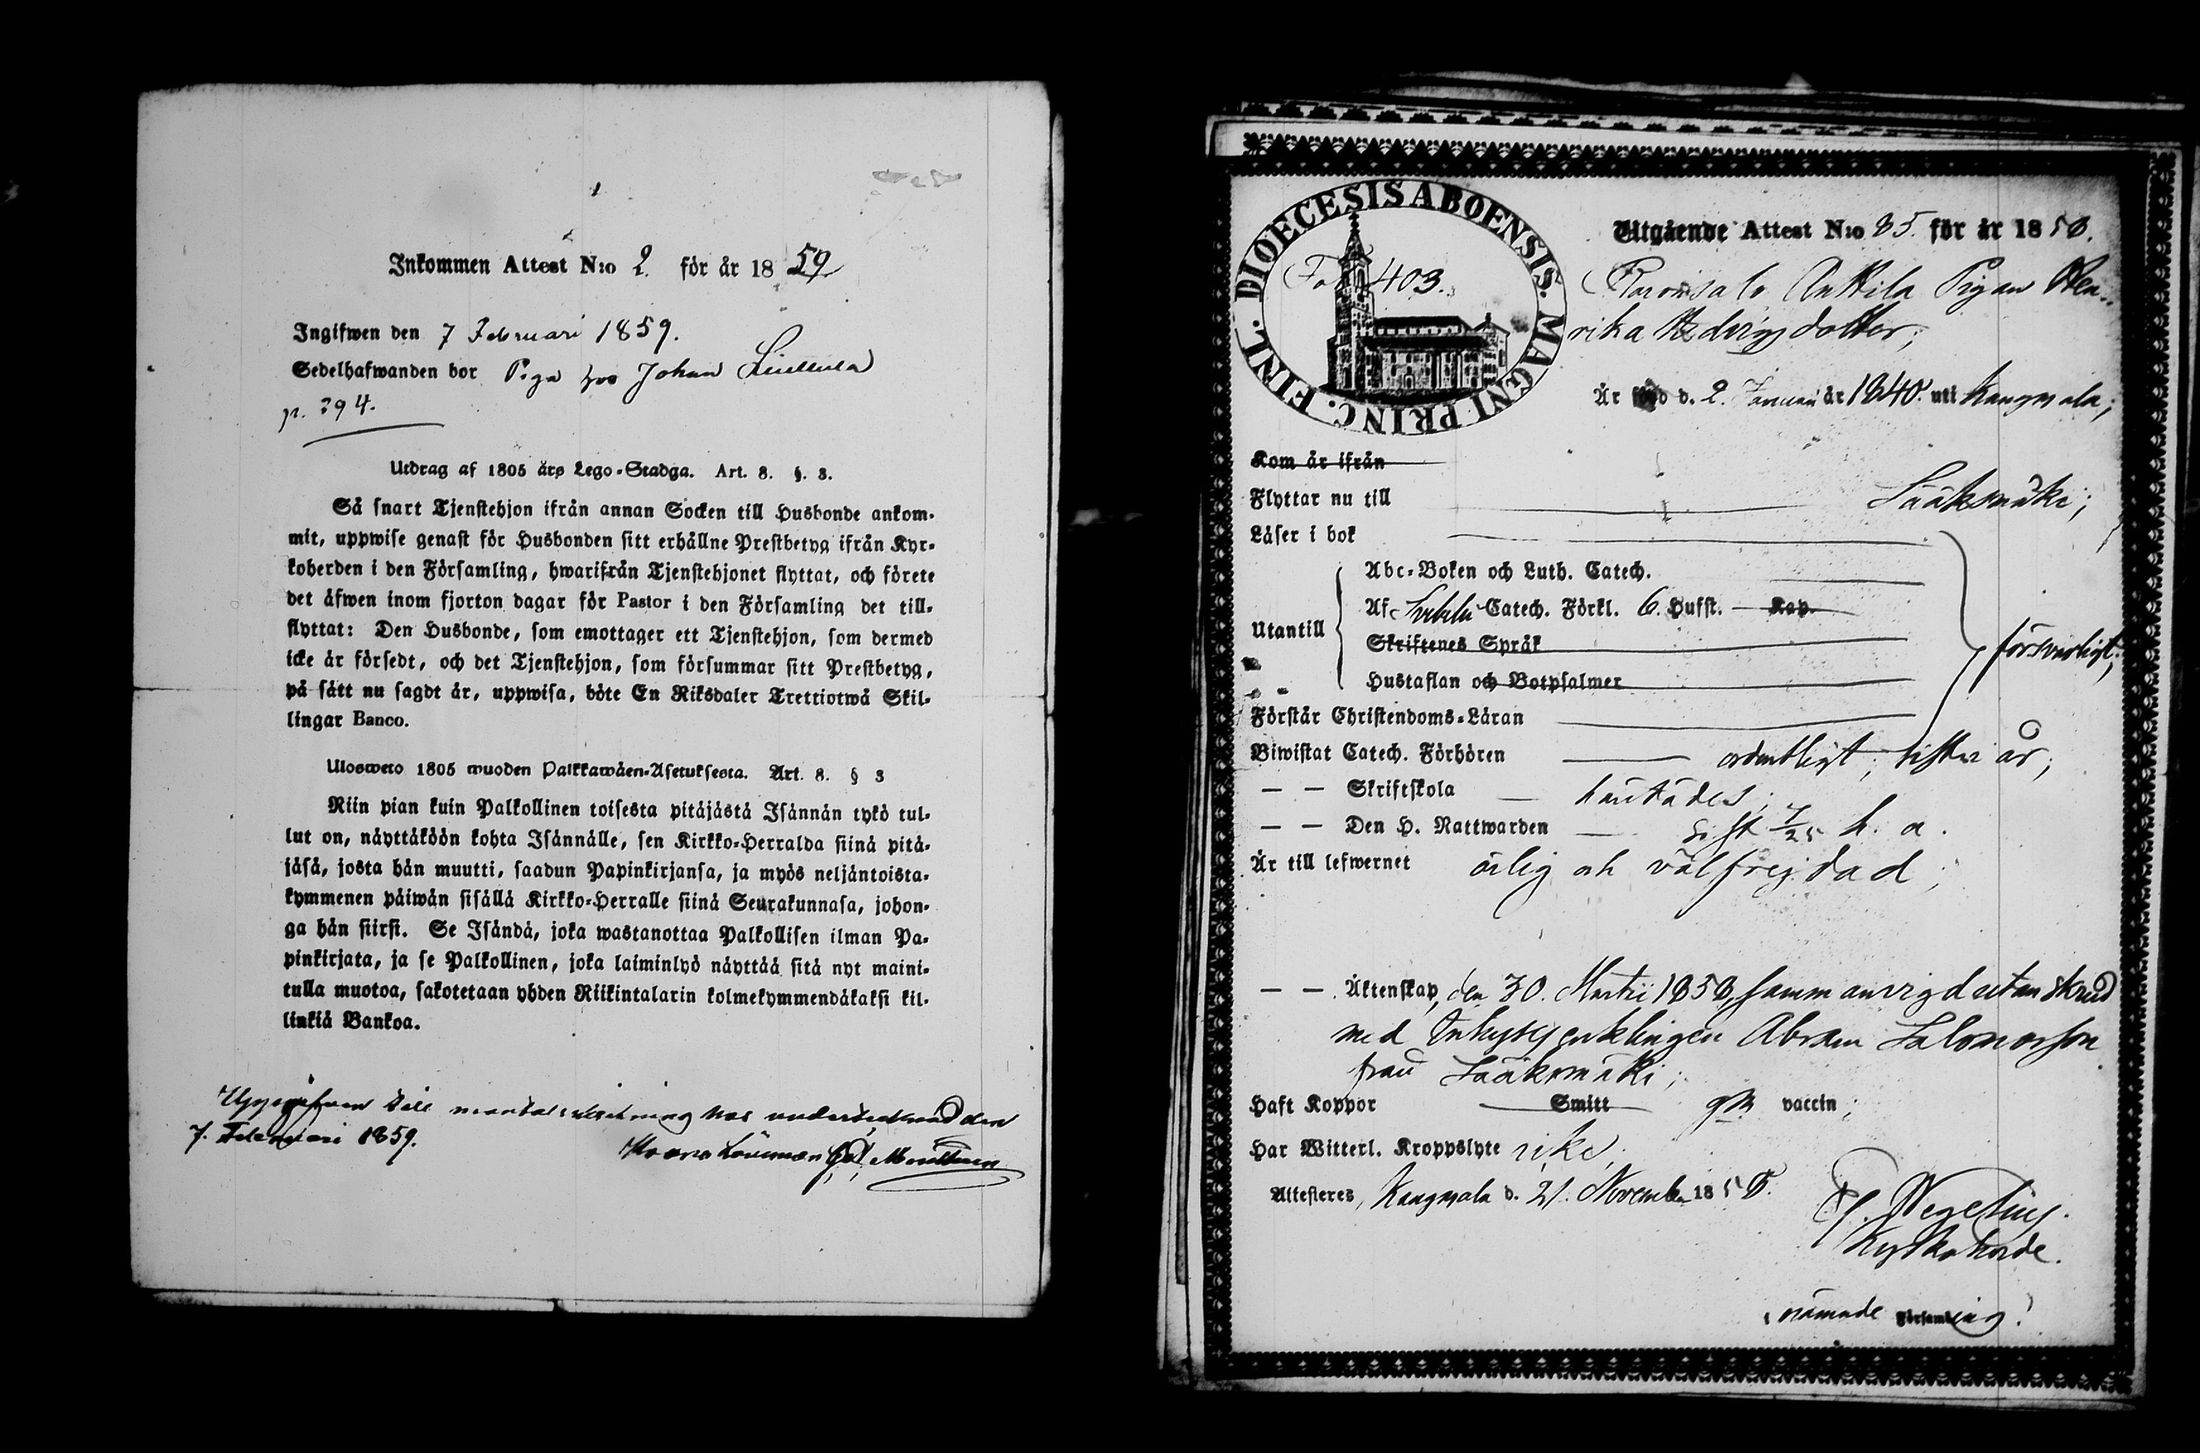 Inkommen Attest N:o 2. för år 1859
Ingifwen den 7 Februari 1859.
Sedelhafwanden bor Piga hos Johan
p. 394.
Utdrag af 1805 års Lego-Stadga. Art. 8. §. 3.
Så snart Tjenstehjon ifrån annan Socken till Husbonde ankom-
mit, uppwise genast för Husbonden sitt erhållne Prestbetyg ifrån Kyr-
koherden i den Församling, hwarifrån Tjenstehjonet flyttat, och förete
det äfwen inom fjorton dagar för Pastor i den Församling det till-
flyttat: Den Husbonde, som emottager ett Tjenstehjon, som dermed
icke är försedt, och det Tjenstehjon, som försummar sitt Prestbetyg,
på sätt nu sagdt är, uppwisa, böte En Riksdaler Trettiotwå Skil-
lingar Banco.
Ulosweto 1805 wuoden Palkkawäen-Asetuksesta. Art. 8. § 3
Niin pian kuin Palkollinen toisesta pitäjästä Isännän tykö tul-
lut on, näyttäköön kohta Isännälle, sen Kirkko-Herralda siinä pitä-
jäsä, josta hän muutti, saadun Papinkirjansa, ja myös neljäntoista-
kymmenen päiwän sisällä Kirkko-Herralle siinä Seurakunnasa, johon-
ga hän siirsi. Se Isändä, joka wastanottaa Palkollisen ilman Pa-
pinkirjata, ja se Palkollinen, joka laiminlyö näyttää sitä nyt maini-
tulla muotoa, sakotetaan yhden Riikintalarin kolmekymmendäkaksi kil-
linkiä Bankoa.
Uppgifwen till mantalsskrifning hos undertecknad den
7. Februari 1859.
Krono Länsman
DIOECESIS ABOENSIS. MAGNI PRINC. FINL.
Fol 403.
Utgående Attest N:o 35. för år 1858.
Anttila Pigan Hen-
rika Hedvigsdotter;
Är född d. 2. Januari år 1840. uti Kangasala;
Kom år ifrån
Flyttar nu till Sääksmäki;
Läser i bok
Abc-Boken och Luth. Catech.
Utantill
Af Svebelii Catech. Förkl. 6. Hufst. Kap.
Skriftenes Språk
Hustaflan och Botpsalmer
försvarligt;
Förstår Christendoms-Läran
Biwistat Catech. Förhören ordentligt, sistl. år;
— — Skriftskola
— — Den H. Nattwarden sist 7/25 h. a.
Är till lefwernet ärlig och välfrejdad;
— — Äktenskap, den 30. Martii 1858, sammanvigd utan skrud
med Inhyses enklingen Abram Salomonsson
från Sääksmäki;
Haft Koppor Smitt gm vaccin;
Har Witterl. Kroppslyte icke;
Attesteras, Kangasala d. 21. November 1858.
Wegelius.
Kyrkoherde.
nämnde Församling!